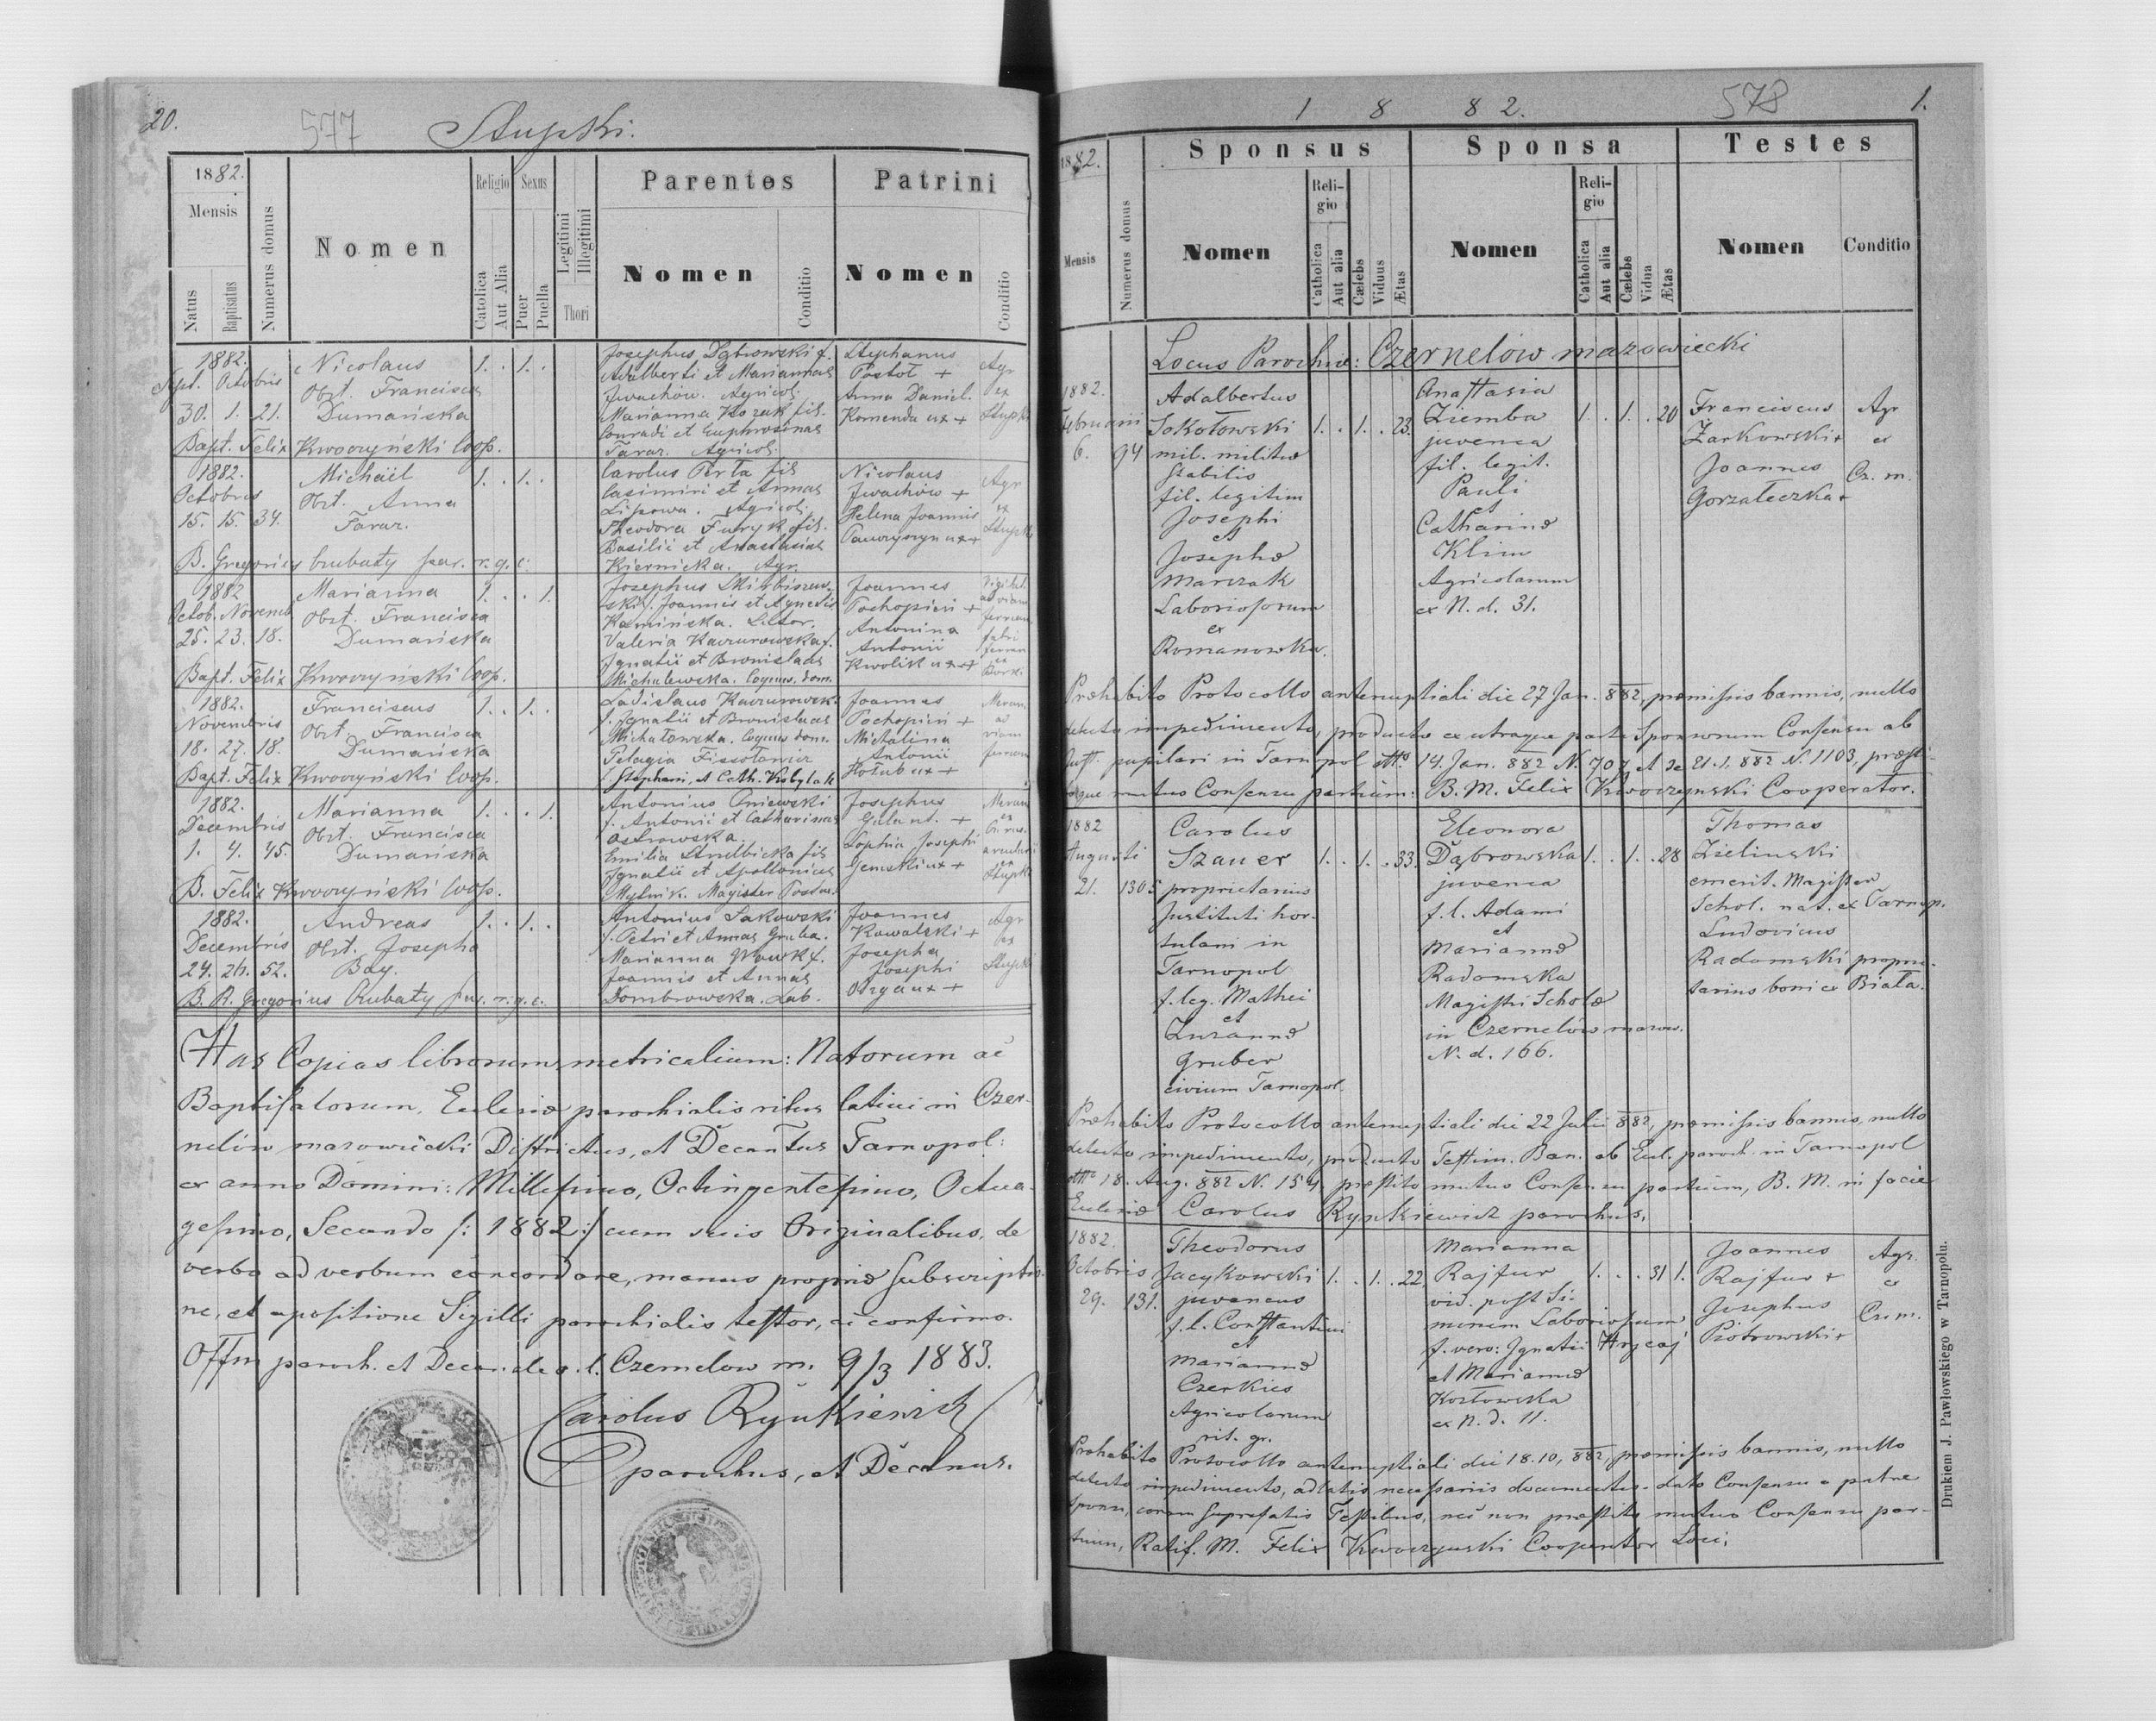 20.
577
Stupki.
1882.
Mensis
Natus
Baptisatus
Numerus domus
Nomen
Religio
Catolica
Aut Alia
Sexus
Puer
Puella
Legitimi
Illegitimi
Thori
Parentes
Nomen
Conditio
Patrini
Nomen
Conditio
1882.
Sept. Octobris
30. 1. 21.
Nicolaus
Obst. Francisca
Dumańska
1. . 1. .
Josephus Dąbrowski f.
Adalberti et Mariannae
Iwachów. Agricol.
Marianna Kozak fil.
Conradi et Euphrosinae
Taraz. Agricol.
Stephanus
Postoł +
Anna Daniel.
Komenda ux +
Agr
ex
Stupki
Bapt. Felix Kwoczyński Coop.
1882.
Octobris
15. 15. 34.
Michaël
Obst. Anna
Taraz.
1. . 1. .
Carolus Perta fil
Casimiri et Annae
Lipowa. Agricol.
Theodora Futryk fil.
Basilii et Anastasiae
Kiernicka. Agr.
Nicolaus
Iwachów +
Helena Joannis
ux +
Agr
ex
Stupki
B. Gregorius Cubaty par. r. g. c.
1882
Octob. Novemb
25. 23. 18.
Marianna
Obst. Francisca
Dumańska
1. . . 1.
Josephus
ski f. Joannis et Agnetis
Kamińska.
Valeria Kaczurowska f.
Ignatii et Bronislaae
Michalewska. Cognus. dom.
Joannes
Pochopień +
Antonina
Antonii
Kwolik ux +
Vigil.
ad viam
ferream
fabri
ferrar
ex
Borki
Bapt. Felix Kwoczyński Coop.
1882.
Novembris
18. 27. 18.
Franciscus
Obst. Francisca
Dumańska
1. . 1. .
Ladislaus Kaczurowsk.
f. Ignatii et Bronislaae
Michałowska. Cognus dom.
Pelagia Fissołowicz
f. Stephani, et Cath. Kobylak
Joannes
Pochopień +
Michalina
Antonii
Hołub ux +
ad
viam
ferream
Bapt. Felix Kwoczyński Coop.
1882.
Decembris
1. 4. 45.
Marianna
Obst. Francisca
Dumańska
1. . . 1.
Antonius Oniewski
f. Antonii et Catharinae
Ostrowska.
Emilia Strulbicka fil
Ignatii et Apolloniae
Mytnik. Magister
Josephus
Galant. +
Sophia Josephi
Gemski ux +
ex
Stupki
B. Felix Kwoczyński Coop.
1882.
Decembris
24. 26. 52.
Andreas
Obst. Josepha
Bay.
1. . 1. .
Antonius Sakowski
f. Petri et Annae Gruba.
Marianna f.
Joannis et Annae
Dombrowska. Lab.
Joannes
Kowalski +
Josepha
Josephi
ux +
Agr
ex
Stupki
B. R. Gregorius Cubaty par. r. g. c.
Has Copias librorum metricalium: Natorum ac
Baptisatorum, Eclesiæ parochialis ritus latini in Czer-
nelów mazowiecki Districtus, et Decantus Tarnopol:
ex anno Domini: Millesimo, Octingentesimo, Octua-
gesimo, Secundo /: 1882 :/ cum suis Originalibus, de
verbo ad verbum concordare, manus propriæ subscriptio-
ne, et apositione Sigilli parochialis testor, ac confirmo.
Offm paroch. et Decan. de r. l. Czernelow m. 9/3 1883.
Carolus Rynkiewicz
parochus, et Decanus.
1882.
578
1.
1882.
Mensis
Numerus domus
Sponsus
Nomen
Reli-
gio
Catholica
Aut alia
Cælebs
Viduus
Ætas
Sponsa
Nomen
Reli-
gio
Catholica
Aut alia
Cælebs
Vidua
Ætas
Testes
Nomen
Conditio
Locus Parochiæ: Czernelów mazowiecki
1882.
Februarii
6. 94
Adalbertus
Sokołowski
mil. militiæ
stabilis
fil. legitim
Josephi
et
Josephæ
Marczak
Laboriosorum
ex
Romanowka.
1. . 1. . 23.
Anastasia
Ziemba
juvenca
fil. legit.
Pauli
et
Catharinæ
Klim
Agricolarum
ex N. d. 31.
1. . 1. . 20
Franciscus
Żarkowski +
Joannes
Gorzałeczka +
Agr
ex
Cz. m.
Præhabito Protocollo antenuptiali die 27 Jan. 882, præmissis bannis, nullo
detecto impedimento, producto ex utraque parte Sponsorum Consensu ab
Just. pupilari in Tarnopol dtto 14. Jan. 882 N. 707 et de 21.1. 882 N. 1103, præsti-
toque mutuo Consensu partium: B. M. Felix Kwoczynski Cooperator.
1882
Augusti
21. 1305
Carolus
Szauer
proprietarius
Instituti hor-
tulani in
Tarnopol
f. leg. Mathei
et
Zuzannæ
Gruber
civium Tarnopol.
1. . 1. . 33.
Eleonora
Dąbrowska
juvenca
f. l. Adami
et
Mariannæ
Radomska
Magistri Scholæ
in Czernelów mazow.
N. d. 166.
1. . 1. . 28
Thomas
Zielinski
emerit. Magister
Schol. nat. ex Tarnop.
Ludovicus
Radomski proprie-
tarius boni ex Biała.
Præhabito Protocollo antenuptiali die 22 Julii 882, præmissis bannis, nullo
detecto impedimento, producto Testim. Ban. ab Eccl. paroch. in Tarnopol
dtto 18. Aug. 882 N. 154, præstito mutuo Consensu partium, B. M. in facie
Eclesiæ Carolus Rynkiewicz parochus.
1882.
Octobris
29. 131.
Theodorus
Jacykowski
juvencus
f. l. Constantini
et
Mariannæ
Czerkies
Agricolarum
rit. gr.
1. . 1. . 22.
Marianna
Rajfur
vid. post Si-
monem Laboriosum
f. vero: Ignatii Hrycaj
et Mariannæ
Kozłowska
ex N. d. 11.
1. . . 31 1.
Joannes
Rajfur +
Josephus
Piotrowski +
Agr.
ex
Cz. m.
Præhabito Protocollo antenuptiali die 18.10, 882, præmissis bannis, nullo
detecto impedimento, adlatis necessariis documentis, dato Consensu a patre
Sponsi, coram suprafatis Testibus, nec non præstito mutuo Consensu par-
tium, Ratif. M. Felix Kwoczynski Cooperator Loci.
Drukiem J. Pawłowskiego w Tarnopolu.